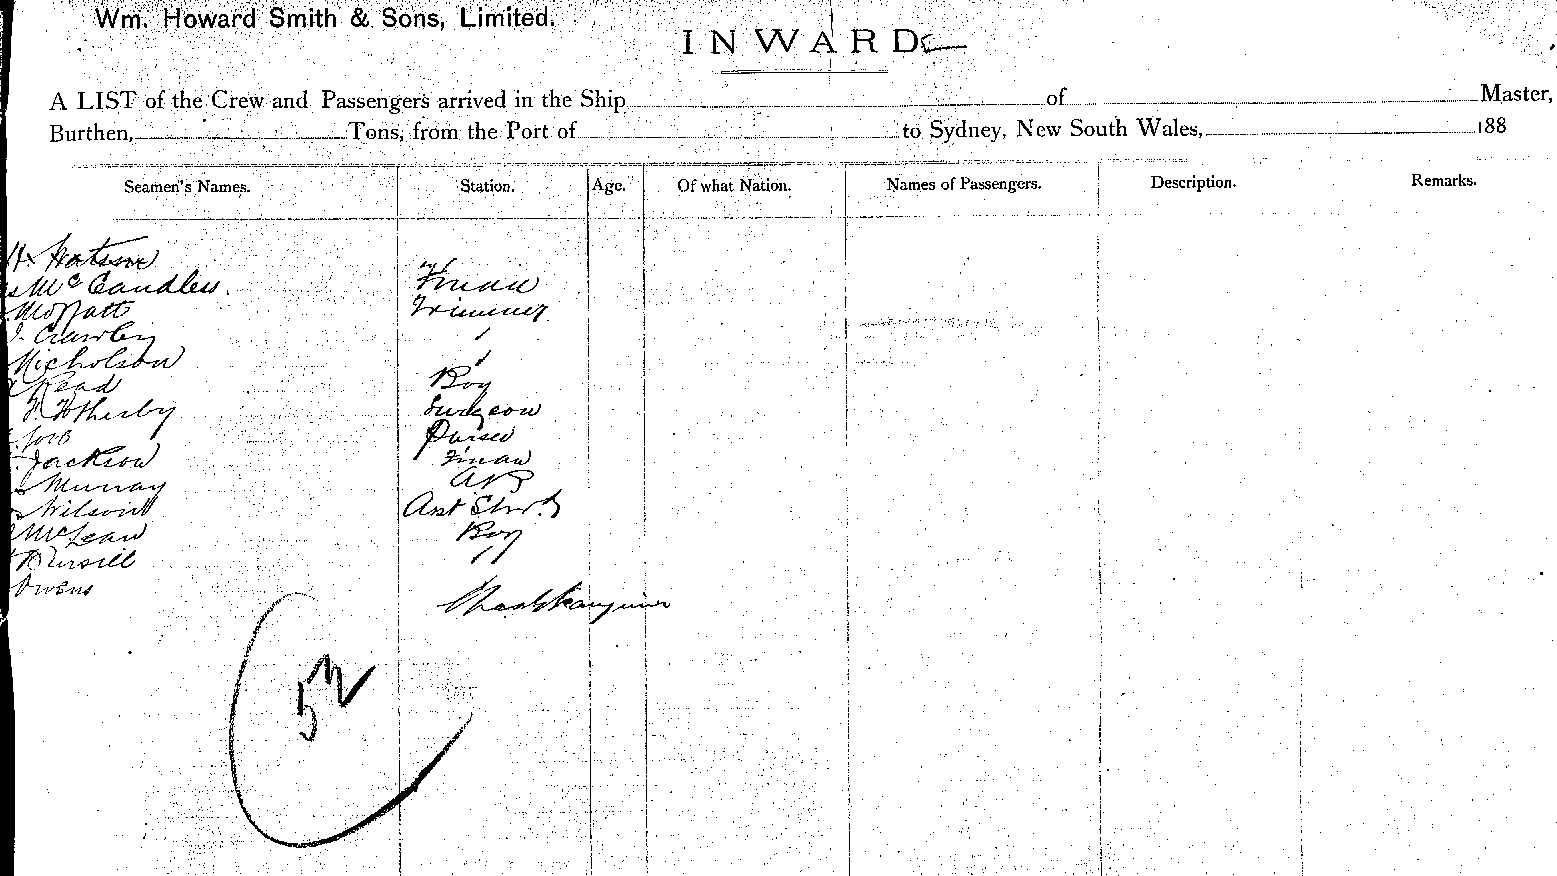 Wm. Howard Smith & Sons, Limited.
INWARD
A LIST of the Crew and Passengers arrived in the Ship of Master,
Burthen, Tons, from the Port of to Sydney, New South Wales, 188
Seamen's Names. Station. Age. Of what Nation. Names of Passengers. Description. Remarks.
H. Watson
McCandless. Fman
Moffatt Trimmer
J. Crawley "
Nicholson "
Read Boy
F Fotherby Surgeon
Purser
Jackson Fman
Murray AB
Wilson Asst Stwd
McLean Boy
"
Owens
52